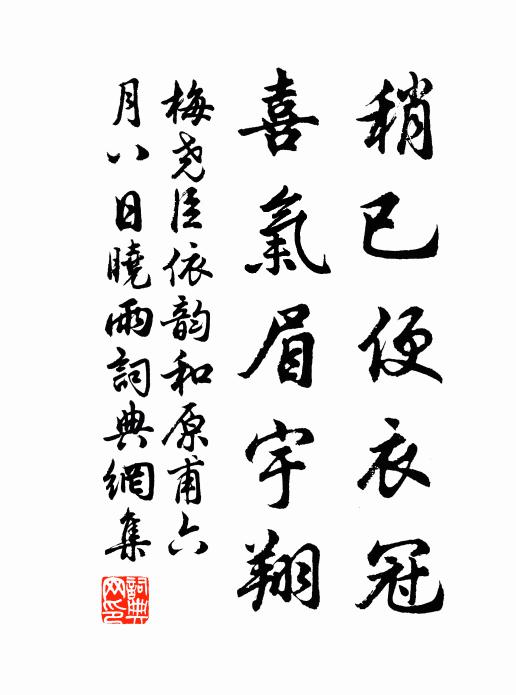 稍已便衣冠
喜氣眉宇翔
梅尧臣依韵和原甫六
月八日曉雨詞典網集
詞典网印